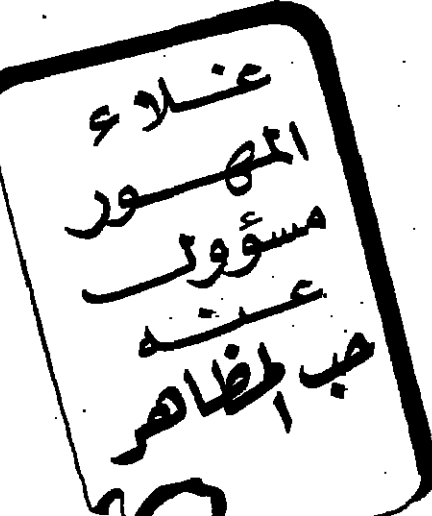 غلاء
المهور
مسؤول
عنه
حب المظاهر